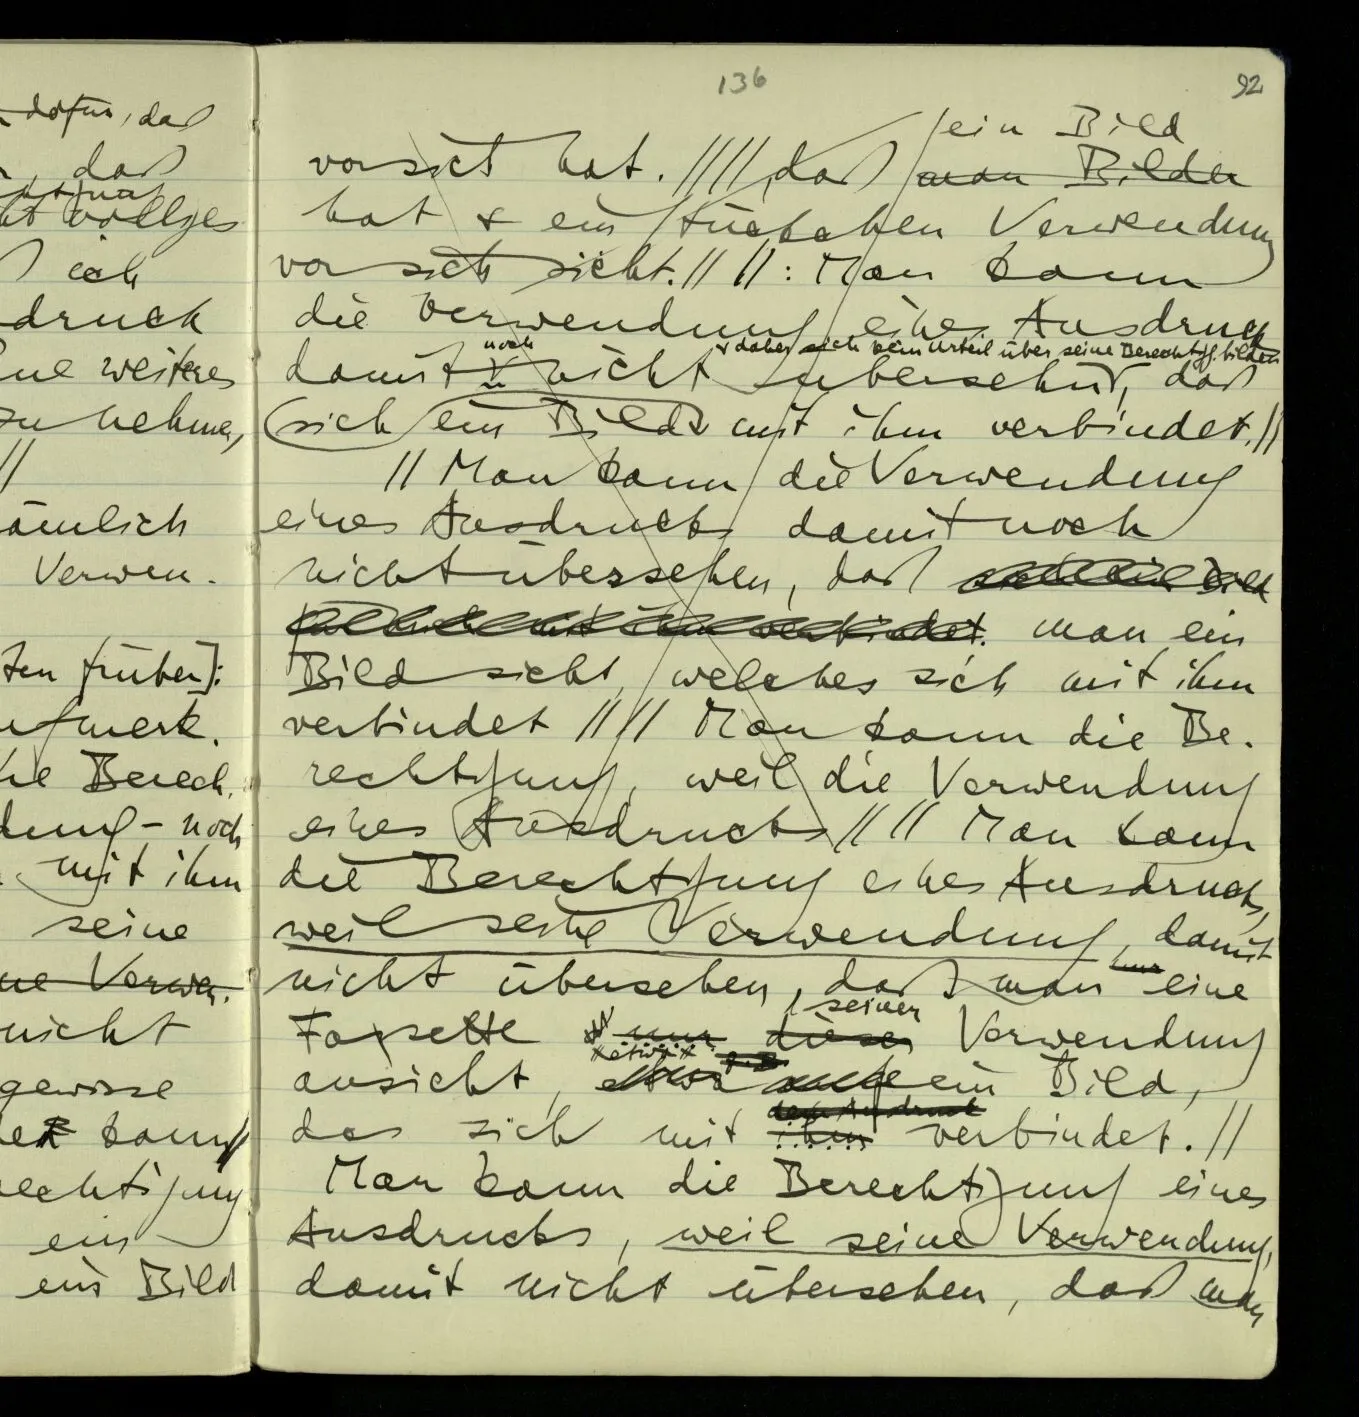 136
92
dafür, daß
daß
vollges
ich
druck
ne weiteres
zu nehmen,
//
ämlich
Verwen-
ten früher]:
ufmerk-
he Berech-
dung – noch
mit ihm
seine
ne Verwen-
nicht
gewisse
kann
rechtigung
ein
ein Bild
ein Bild
vorsich hat. //// daß man Bilder
hat & ein Stückchen Verwendung
vor sich sieht. // //: Man kann
die Verwendung eines Ausdrucks
noch
& daher sich kein Urteil über seine Berechtigg. bilden
damit nicht übersehen, daß
sich ein Bild mit ihm verbindet. //
// Man kann die Verwendung
eines Ausdrucks damit noch
nicht übersehen, daß Bild
mit ihm verbindet. man ein
Bild sieht, welches sich mit ihm
verbindet //// Man kann die Be-
rechtigung, weil die Verwendung
eines Ausdrucks // // Man kann
die Berechtigung eines Ausdrucks,
weil seine Verwendung, damit
nicht übersehen, daß man nur eine
seiner
Fassette nur dieser Verwendung
ansieht, etwa ein Bild,
dem Ausdruck
das sich mit ihm verbindet. //
Man kann die Berechtigung eines
Ausdrucks, weil seine Verwendung,
damit nicht übersehen, daß man